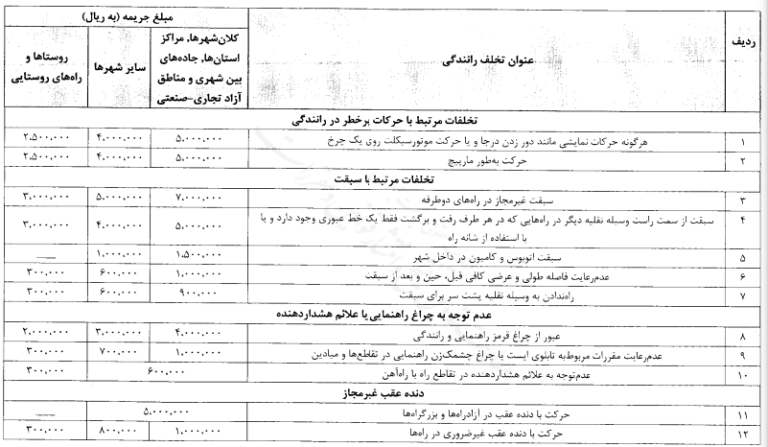 ردیف | عنوان تخلف رانندگی | مبلغ جریمه (به ریال)
کلان‌شهرها، مراکز استان‌ها، جاده‌های بین شهری و مناطق آزاد تجاری-صنعتی | سایر شهرها | روستاها و راه‌های روستایی
تخلفات مرتبط با حرکات پرخطر در رانندگی
۱ | هرگونه حرکات نمایشی مانند دور زدن درجا و یا حرکت موتورسیکلت روی یک چرخ | ۵،۰۰۰،۰۰۰ | ۴،۰۰۰،۰۰۰ | ۲،۵۰۰،۰۰۰
۲ | حرکت به‌طور مارپیچ | ۵،۰۰۰،۰۰۰ | ۴،۰۰۰،۰۰۰ | ۲،۵۰۰،۰۰۰
تخلفات مرتبط با سبقت
۳ | سبقت غیرمجاز در راه‌های دوطرفه | ۷،۰۰۰،۰۰۰ | ۵،۰۰۰،۰۰۰ | ۳،۰۰۰،۰۰۰
۴ | سبقت از سمت راست وسیله نقلیه دیگر در راه‌هایی که در هر طرف رفت و برگشت فقط یک خط عبوری وجود دارد و یا
با استفاده از شانه راه | ۵،۰۰۰،۰۰۰ | ۴،۰۰۰،۰۰۰ | ۳،۰۰۰،۰۰۰
۵ | سبقت اتوبوس و کامیون در داخل شهر | ۱،۵۰۰،۰۰۰ | ۱،۰۰۰،۰۰۰ | ——
۶ | عدم‌رعایت فاصله طولی و عرضی کافی قبل، حین و بعد از سبقت | ۱،۰۰۰،۰۰۰ | ۶۰۰،۰۰۰ | ۳۰۰،۰۰۰
۷ | راه‌ندادن به وسیله نقلیه پشت سر برای سبقت | ۹۰۰،۰۰۰ | ۶۰۰،۰۰۰ | ۳۰۰،۰۰۰
عدم توجه به چراغ راهنمایی یا علائم هشداردهنده
۸ | عبور از چراغ قرمز راهنمایی و رانندگی | ۴،۰۰۰،۰۰۰ | ۳،۰۰۰،۰۰۰ | ۲،۰۰۰،۰۰۰
۹ | عدم‌رعایت مقررات مربوط‌به تابلوی ایست یا چراغ چشمک‌زن راهنمایی در تقاطع‌ها و میادین | ۱،۰۰۰،۰۰۰ | ۷۰۰،۰۰۰ | ۳۰۰،۰۰۰
۱۰ | عدم‌توجه به علائم هشداردهنده در تقاطع راه با راه‌آهن | ۶۰۰،۰۰۰ | ۳۰۰،۰۰۰
دنده عقب غیرمجاز
۱۱ | حرکت با دنده عقب در آزادراه‌ها و بزرگراه‌ها | ۵،۰۰۰،۰۰۰ | ——
۱۲ | حرکت با دنده عقب غیرضروری در راه‌ها | ۱،۰۰۰،۰۰۰ | ۸۰۰،۰۰۰ | ۳۰۰،۰۰۰